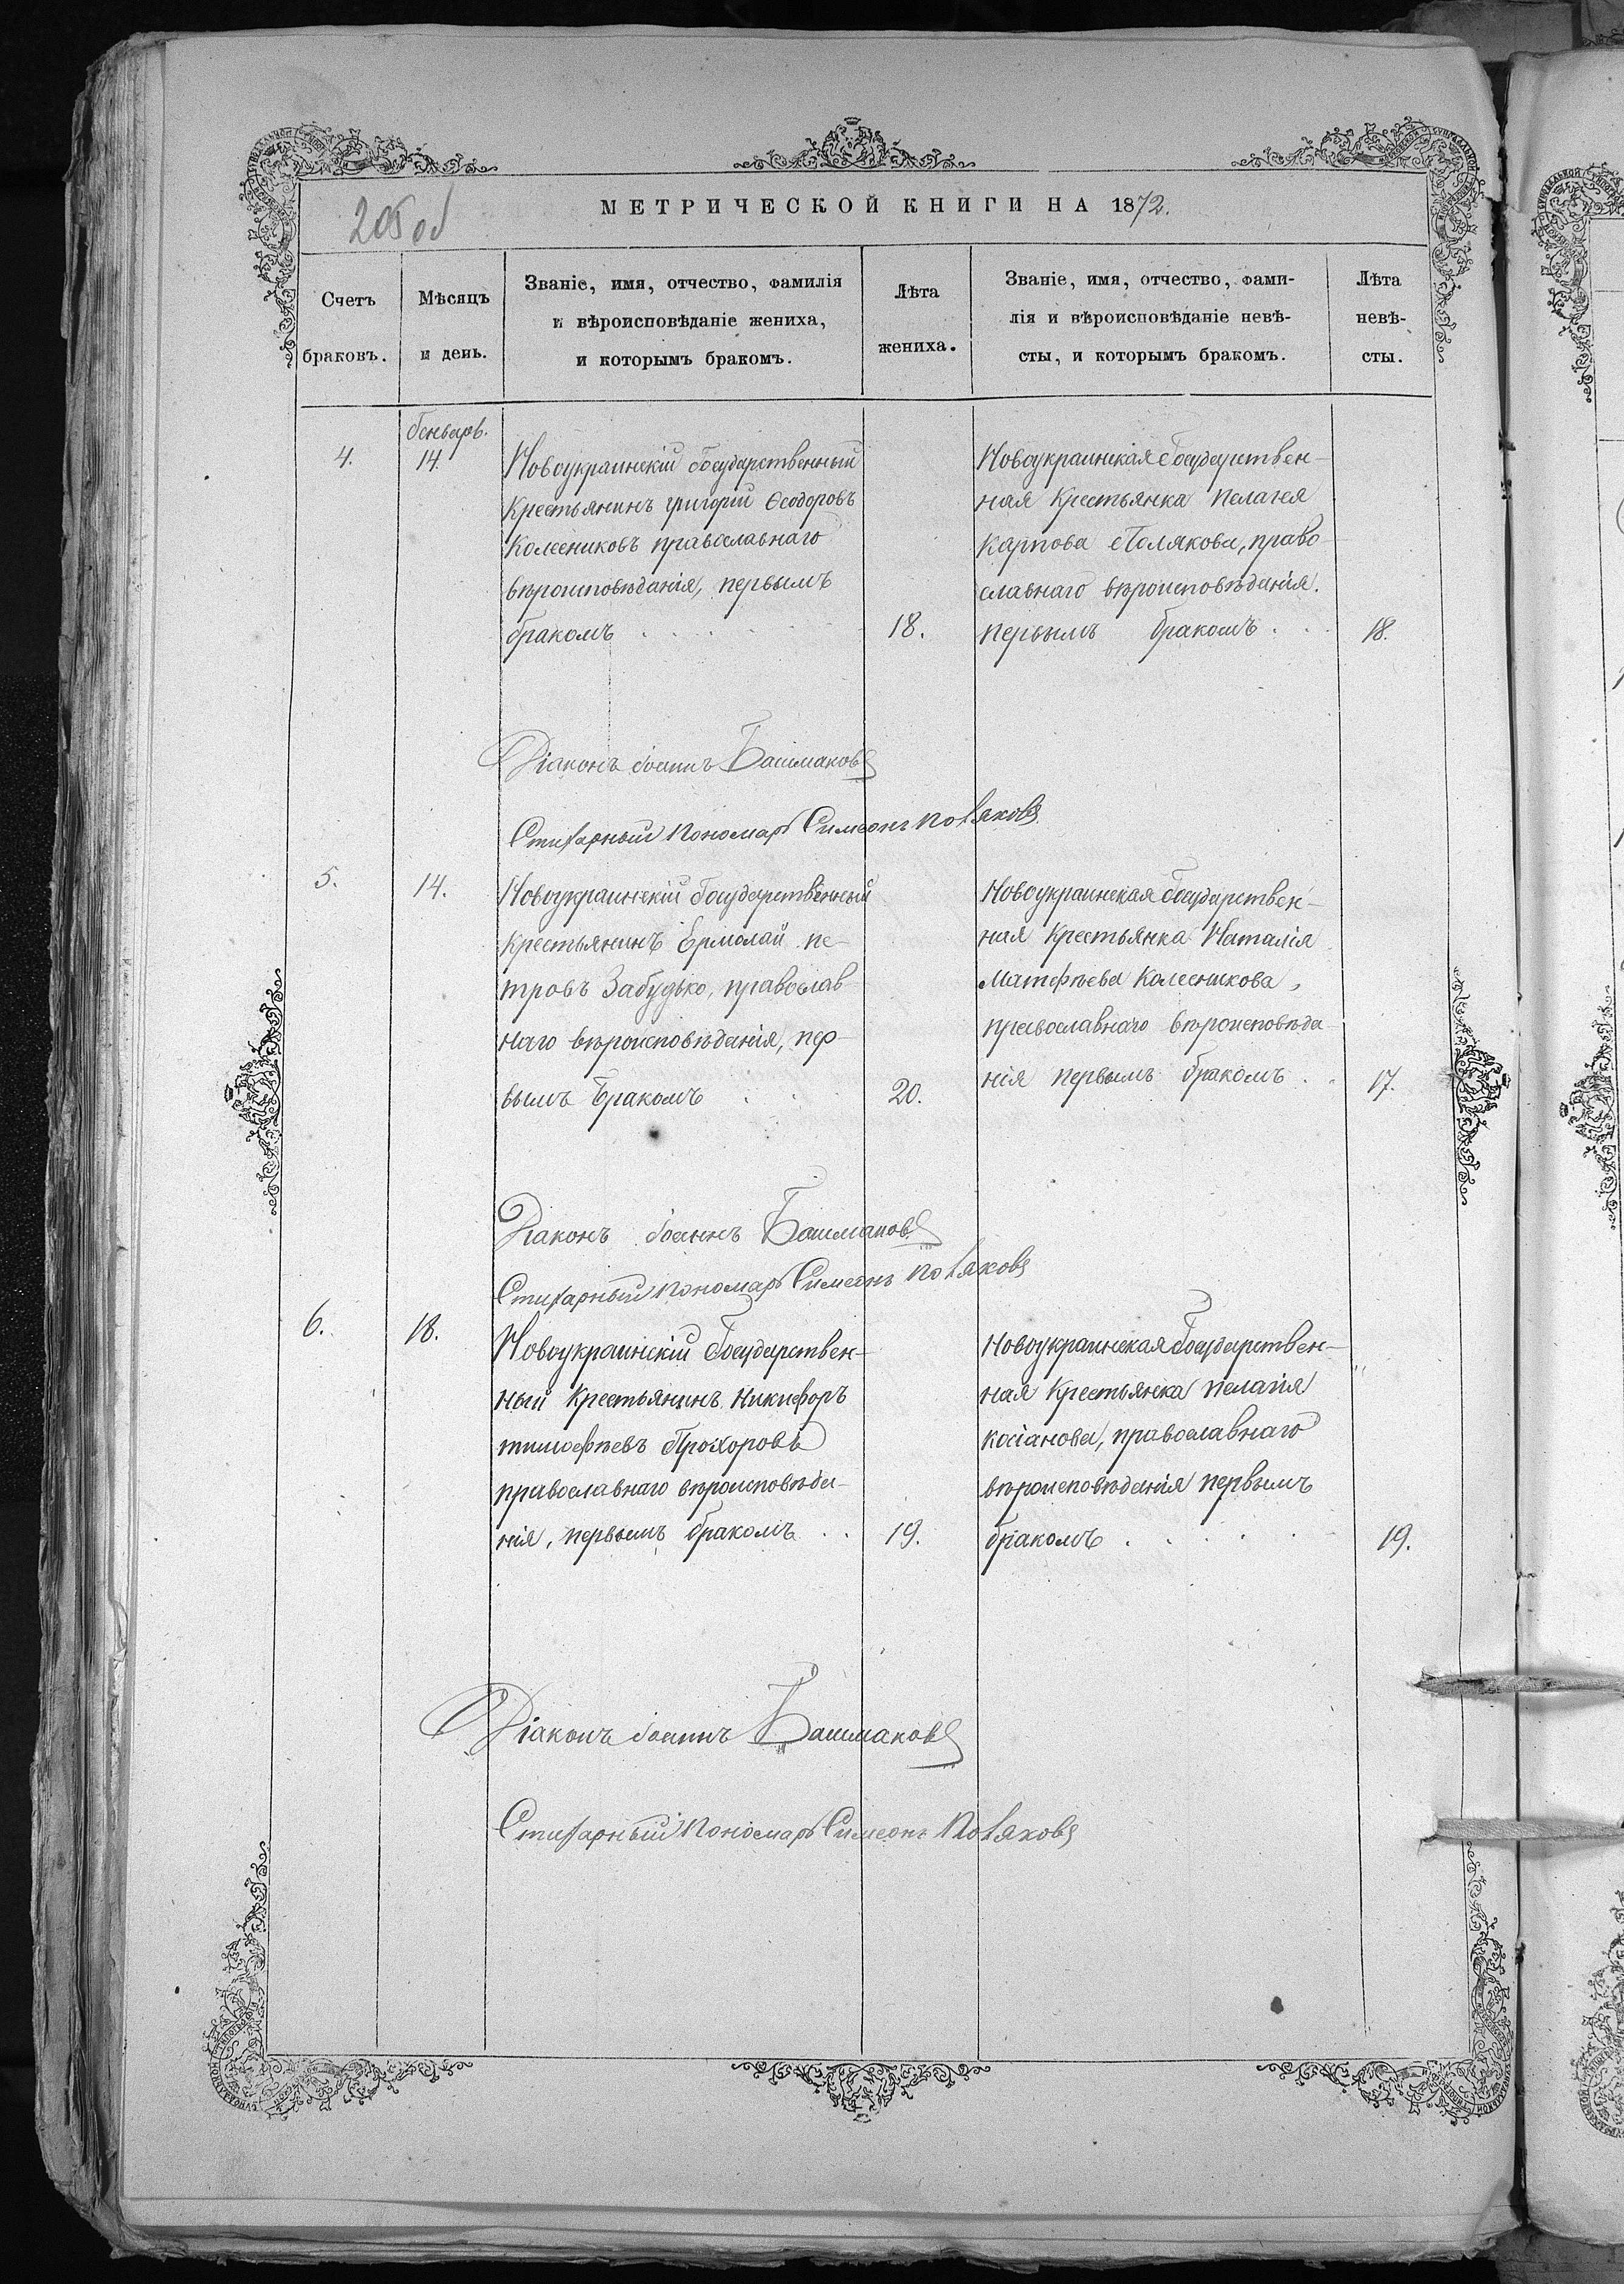 205 об
МЕТРИЧЕСКОЙ КНИГИ НА 1872.
Счетъ браковъ.
Мѣсяцъ и день.
Званіе, имя, отчество, фамилія
и вѣроисповѣданіе жениха,
и которымъ бракомъ.
Лѣта жениха.
Званіе, имя, отчество, фами-
лія и вѣроисповѣданіе невѣ-
сты, и которымъ бракомъ.
Лѣта невѣ-
сты.
Генварь.
4.
14.
Новоукраинскій Государственный
Крестьянинъ Григорій Ѳеодоровъ
Колесниковъ православнаго
вѣроисповѣданія, первымъ
бракомъ
18.
Новоукраинская Государствен-
ная Крестьянка Пелагея
Карпова Полякова, право
славнаго вѣроисповѣданія.
первымъ бракомъ
18.
Діаконъ Іоаннъ Башмаковъ
Стихарный Пономарь Симеонъ Поляковъ
5.
14.
Новоукраинскій Государственный
Крестьянинъ Ермолай Пе-
тровъ Забудько, православ
наго вѣроисповѣданія, пер-
вымъ бракомъ
20.
Новоукраинская Государствен-
ная Крестьянка Наталія
Матфѣева Колесникова,
православнаго вѣроисповѣда-
нія первымъ бракомъ
17.
Діаконъ Іоаннъ Башмаковъ
Стихарный Пономарь Симеонъ Поляковъ
6.
18.
Новоукраинскій Государствен-
ный Крестьянинъ Никифоръ
Тимофѣевъ Прохоровъ
православнаго вѣроисповѣда-
нія, первымъ бракомъ
19.
Новоукраинская Государствен-
ная Крестьянка Пелагія
Косіанова, православнаго
вѣроисповѣданія первымъ
бракомъ
19.
Діаконъ Іоаннъ Башмаковъ
Стихарный Пономарь Симеонъ Поляковъ